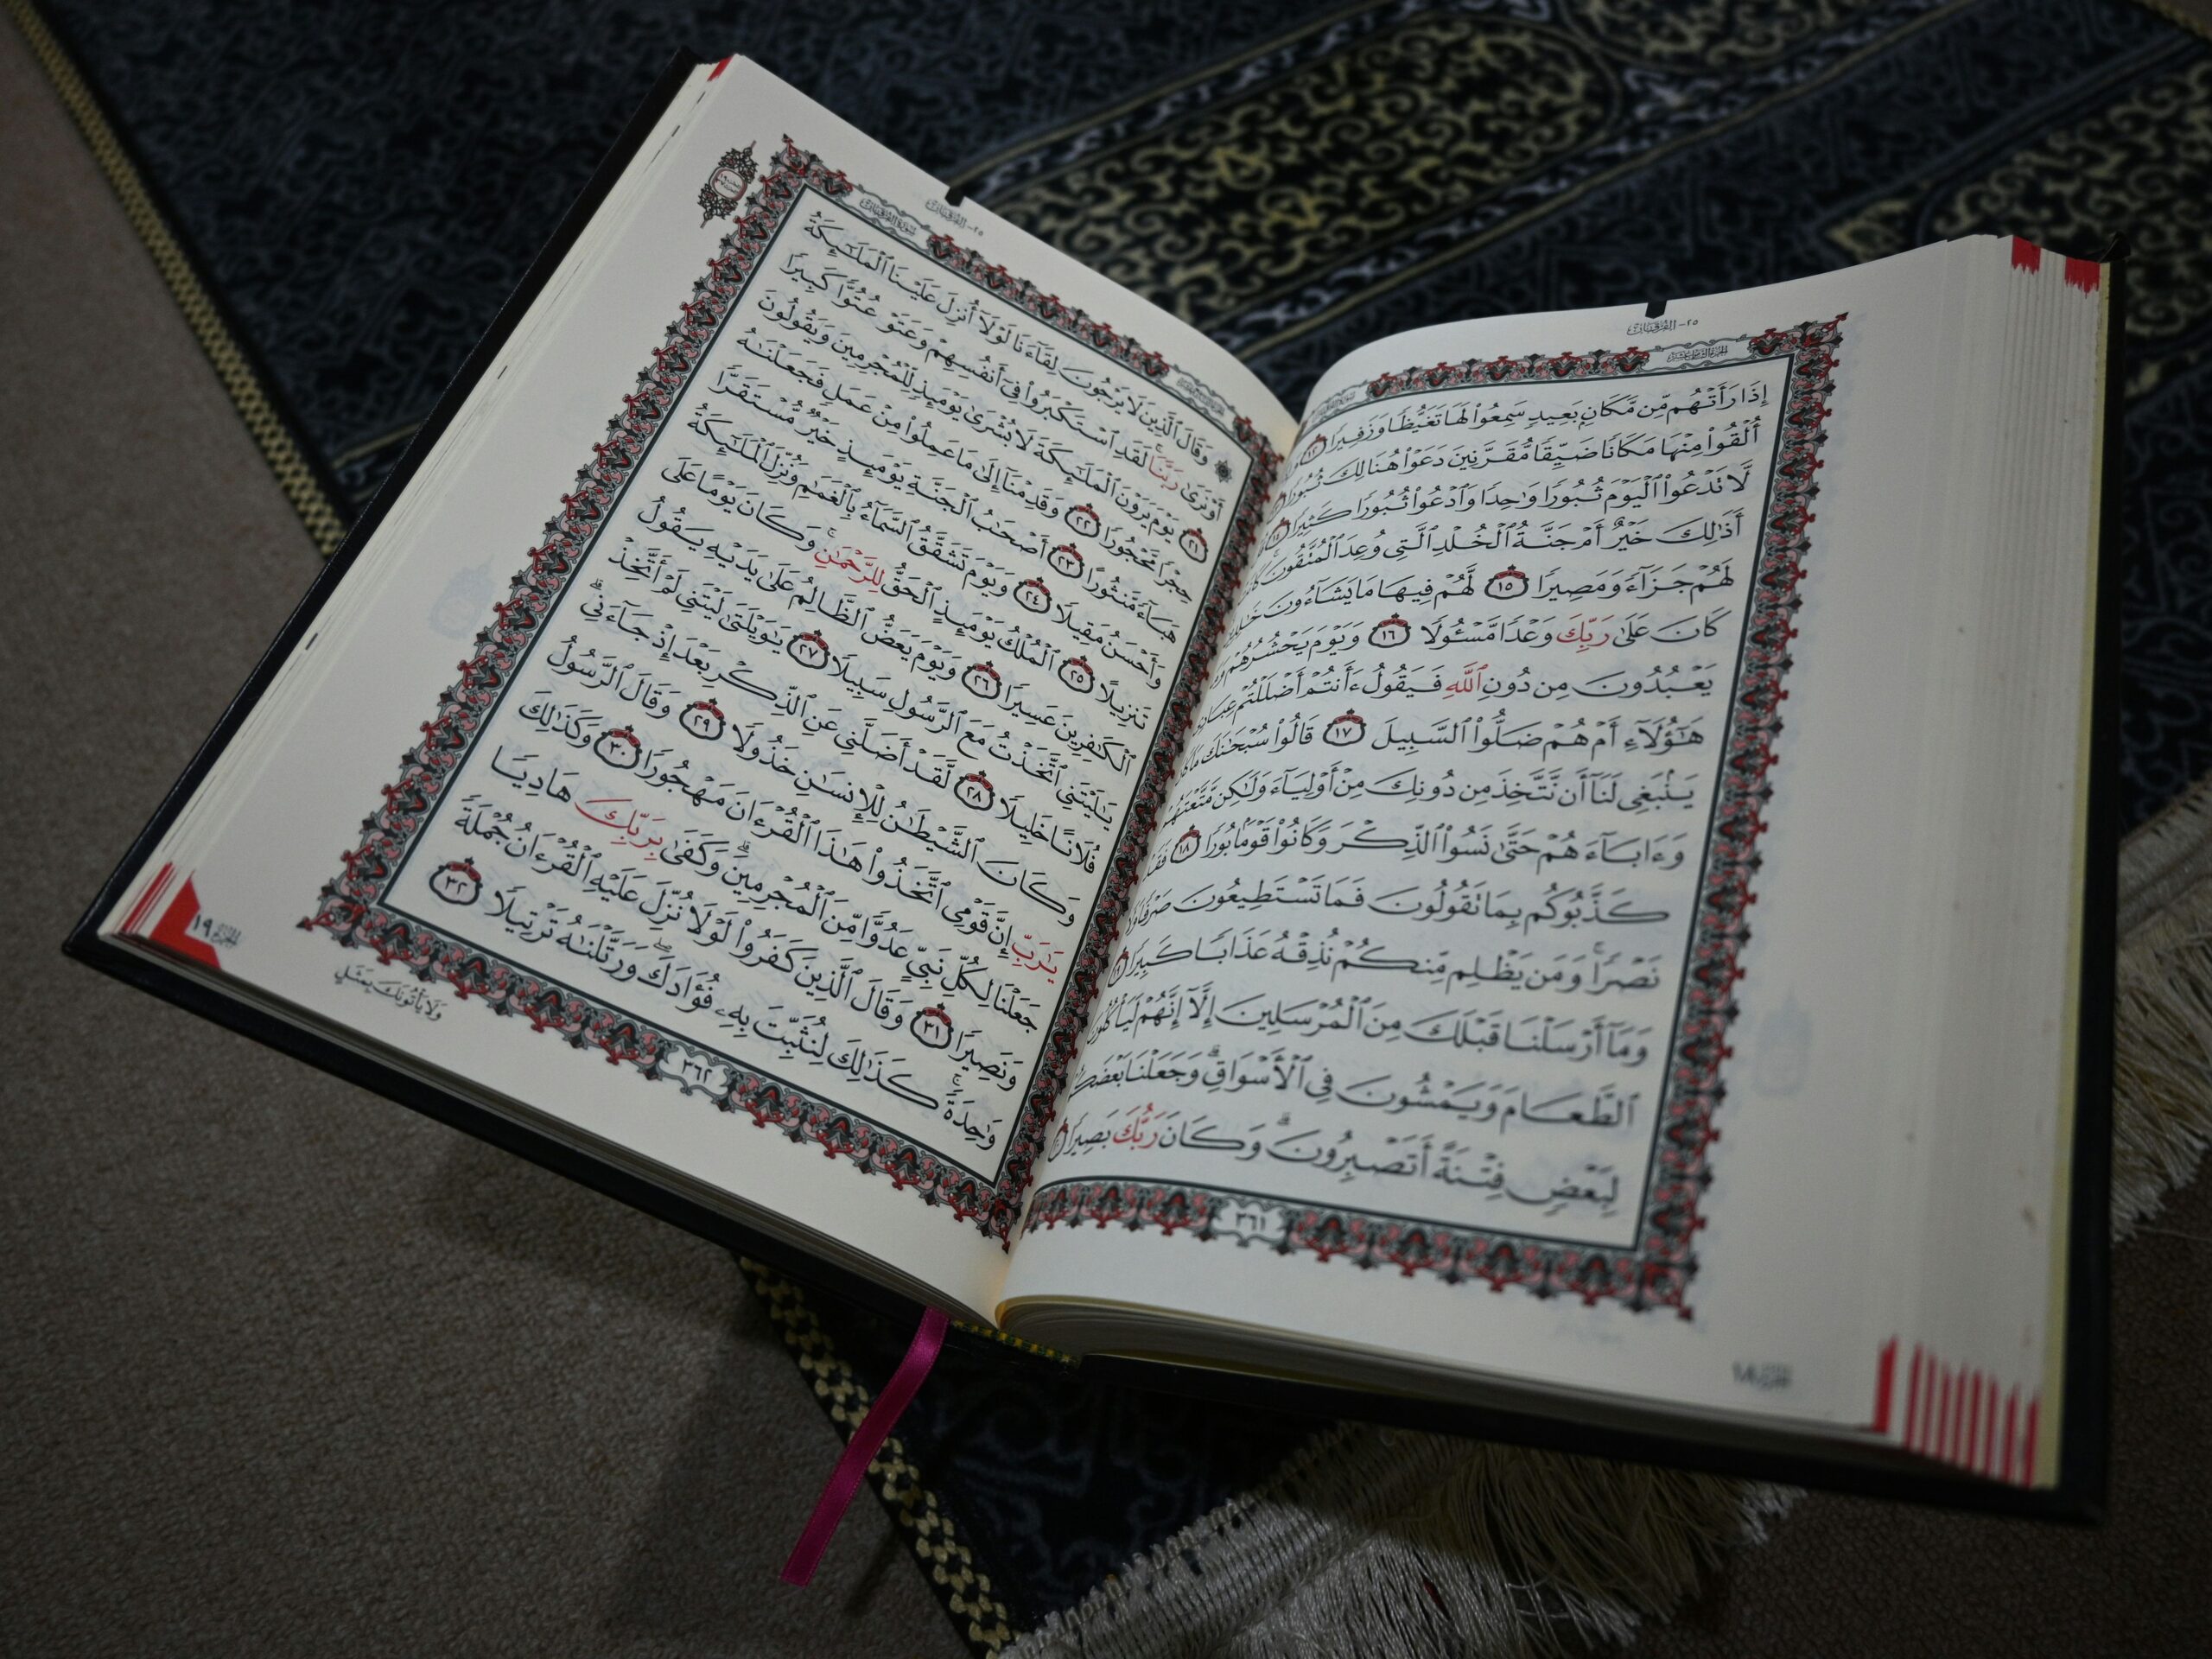 ٢٥- الفرقان
إِذَا رَأَتْهُم مِّن مَّكَانٍۭ بَعِيدٍ سَمِعُوا۟ لَهَا تَغَيُّظًا وَزَفِيرًا ١٢
أُلْقُوا۟ مِنْهَا مَكَانًا ضَيِّقًا مُّقَرَّنِينَ دَعَوْا۟ هُنَالِكَ ثُبُورًا
لَّا تَدْعُوا۟ ٱلْيَوْمَ ثُبُورًا وَٰحِدًا وَٱدْعُوا۟ ثُبُورًا كَثِيرًا ١٤
أَذَٰلِكَ خَيْرٌ أَمْ جَنَّةُ ٱلْخُلْدِ ٱلَّتِى وُعِدَ ٱلْمُتَّقُونَ
لَهُمْ جَزَآءً وَمَصِيرًا ١٥ لَّهُمْ فِيهَا مَا يَشَآءُونَ
كَانَ عَلَىٰ رَبِّكَ وَعْدًا مَّسْـُٔولًا ١٦ وَيَوْمَ يَحْشُرُهُمْ
يَعْبُدُونَ مِن دُونِ ٱللَّهِ فَيَقُولُ ءَأَنتُمْ أَضْلَلْتُمْ
هَـٰٓؤُلَآءِ أَمْ هُمْ ضَلُّوا۟ ٱلسَّبِيلَ ١٧ قَالُوا۟ سُبْحَـٰنَكَ
يَنۢبَغِى لَنَآ أَن نَّتَّخِذَ مِن دُونِكَ مِنْ أَوْلِيَآءَ وَلَـٰكِن مَّتَّعْتَهُمْ
وَءَابَآءَهُمْ حَتَّىٰ نَسُوا۟ ٱلذِّكْرَ وَكَانُوا۟ قَوْمًۢا بُورًا ١٨
كَذَّبُوكُم بِمَا تَقُولُونَ فَمَا تَسْتَطِيعُونَ صَرْفًا
نَصْرًا ۚ وَمَن يَظْلِم مِّنكُمْ نُذِقْهُ عَذَابًا كَبِيرًا ١٩
وَمَآ أَرْسَلْنَا قَبْلَكَ مِنَ ٱلْمُرْسَلِينَ إِلَّآ إِنَّهُمْ لَيَأْكُلُونَ
ٱلطَّعَامَ وَيَمْشُونَ فِى ٱلْأَسْوَاقِ ۗ وَجَعَلْنَا بَعْضَكُمْ
لِبَعْضٍ فِتْنَةً أَتَصْبِرُونَ ۗ وَكَانَ رَبُّكَ بَصِيرًا
٣٦١
الجزء ١٨
٢٥- الفرقان
سورة الفرقان
وَقَالَ ٱلَّذِينَ لَا يَرْجُونَ لِقَآءَنَا لَوْلَآ أُنزِلَ عَلَيْنَا ٱلْمَلَـٰٓئِكَةُ
أَوْ نَرَىٰ رَبَّنَا ۗ لَقَدِ ٱسْتَكْبَرُوا۟ فِىٓ أَنفُسِهِمْ وَعَتَوْ عُتُوًّا كَبِيرًا
٢١ يَوْمَ يَرَوْنَ ٱلْمَلَـٰٓئِكَةَ لَا بُشْرَىٰ يَوْمَئِذٍ لِّلْمُجْرِمِينَ وَيَقُولُونَ
حِجْرًا مَّحْجُورًا ٢٢ وَقَدِمْنَآ إِلَىٰ مَا عَمِلُوا۟ مِنْ عَمَلٍ فَجَعَلْنَـٰهُ
هَبَآءً مَّنثُورًا ٢٣ أَصْحَـٰبُ ٱلْجَنَّةِ يَوْمَئِذٍ خَيْرٌ مُّسْتَقَرًّا
وَأَحْسَنُ مَقِيلًا ٢٤ وَيَوْمَ تَشَقَّقُ ٱلسَّمَآءُ بِٱلْغَمَـٰمِ وَنُزِّلَ ٱلْمَلَـٰٓئِكَةُ
تَنزِيلًا ٢٥ ٱلْمُلْكُ يَوْمَئِذٍ ٱلْحَقُّ لِلرَّحْمَـٰنِ ۚ وَكَانَ يَوْمًا عَلَى
ٱلْكَـٰفِرِينَ عَسِيرًا ٢٦ وَيَوْمَ يَعَضُّ ٱلظَّالِمُ عَلَىٰ يَدَيْهِ يَقُولُ
يَـٰلَيْتَنِى ٱتَّخَذْتُ مَعَ ٱلرَّسُولِ سَبِيلًا ٢٧ يَـٰوَيْلَتَىٰ لَيْتَنِى لَمْ أَتَّخِذْ
فُلَانًا خَلِيلًا ٢٨ لَّقَدْ أَضَلَّنِى عَنِ ٱلذِّكْرِ بَعْدَ إِذْ جَآءَنِى ۗ
وَكَانَ ٱلشَّيْطَـٰنُ لِلْإِنسَـٰنِ خَذُولًا ٢٩ وَقَالَ ٱلرَّسُولُ
يَـٰرَبِّ إِنَّ قَوْمِى ٱتَّخَذُوا۟ هَـٰذَا ٱلْقُرْءَانَ مَهْجُورًا ٣٠ وَكَذَٰلِكَ
جَعَلْنَا لِكُلِّ نَبِىٍّ عَدُوًّا مِّنَ ٱلْمُجْرِمِينَ ۗ وَكَفَىٰ بِرَبِّكَ هَادِيًا
وَنَصِيرًا ٣١ وَقَالَ ٱلَّذِينَ كَفَرُوا۟ لَوْلَا نُزِّلَ عَلَيْهِ ٱلْقُرْءَانُ جُمْلَةً
وَٰحِدَةً ۚ كَذَٰلِكَ لِنُثَبِّتَ بِهِۦ فُؤَادَكَ ۖ وَرَتَّلْنَـٰهُ تَرْتِيلًا ٣٢
٣٦٢
وَلَا يَأْتُونَكَ بِمَثَلٍ
الجزء ١٩